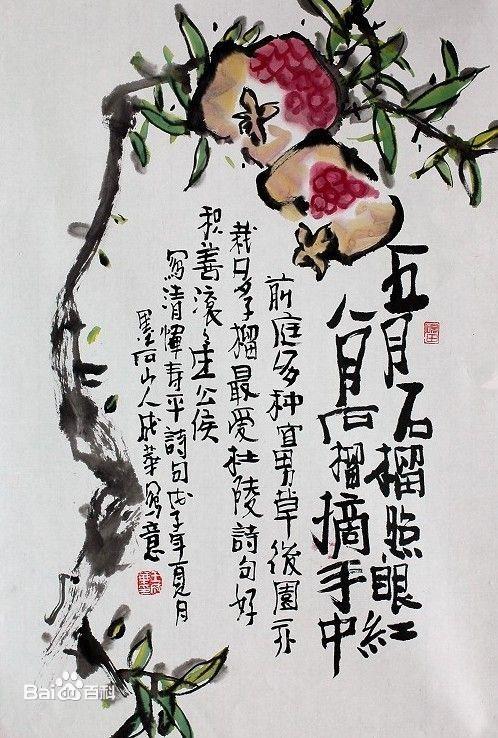 五月石榴照眼紅
八月石榴摘手中
前庭多种宜男草後園亦
栽多子榴最爱杜陵詩句好
积善滚〻生公侯
寫清惲寿平詩句戊子年夏月
墨石山人成華寫意
Bai百科